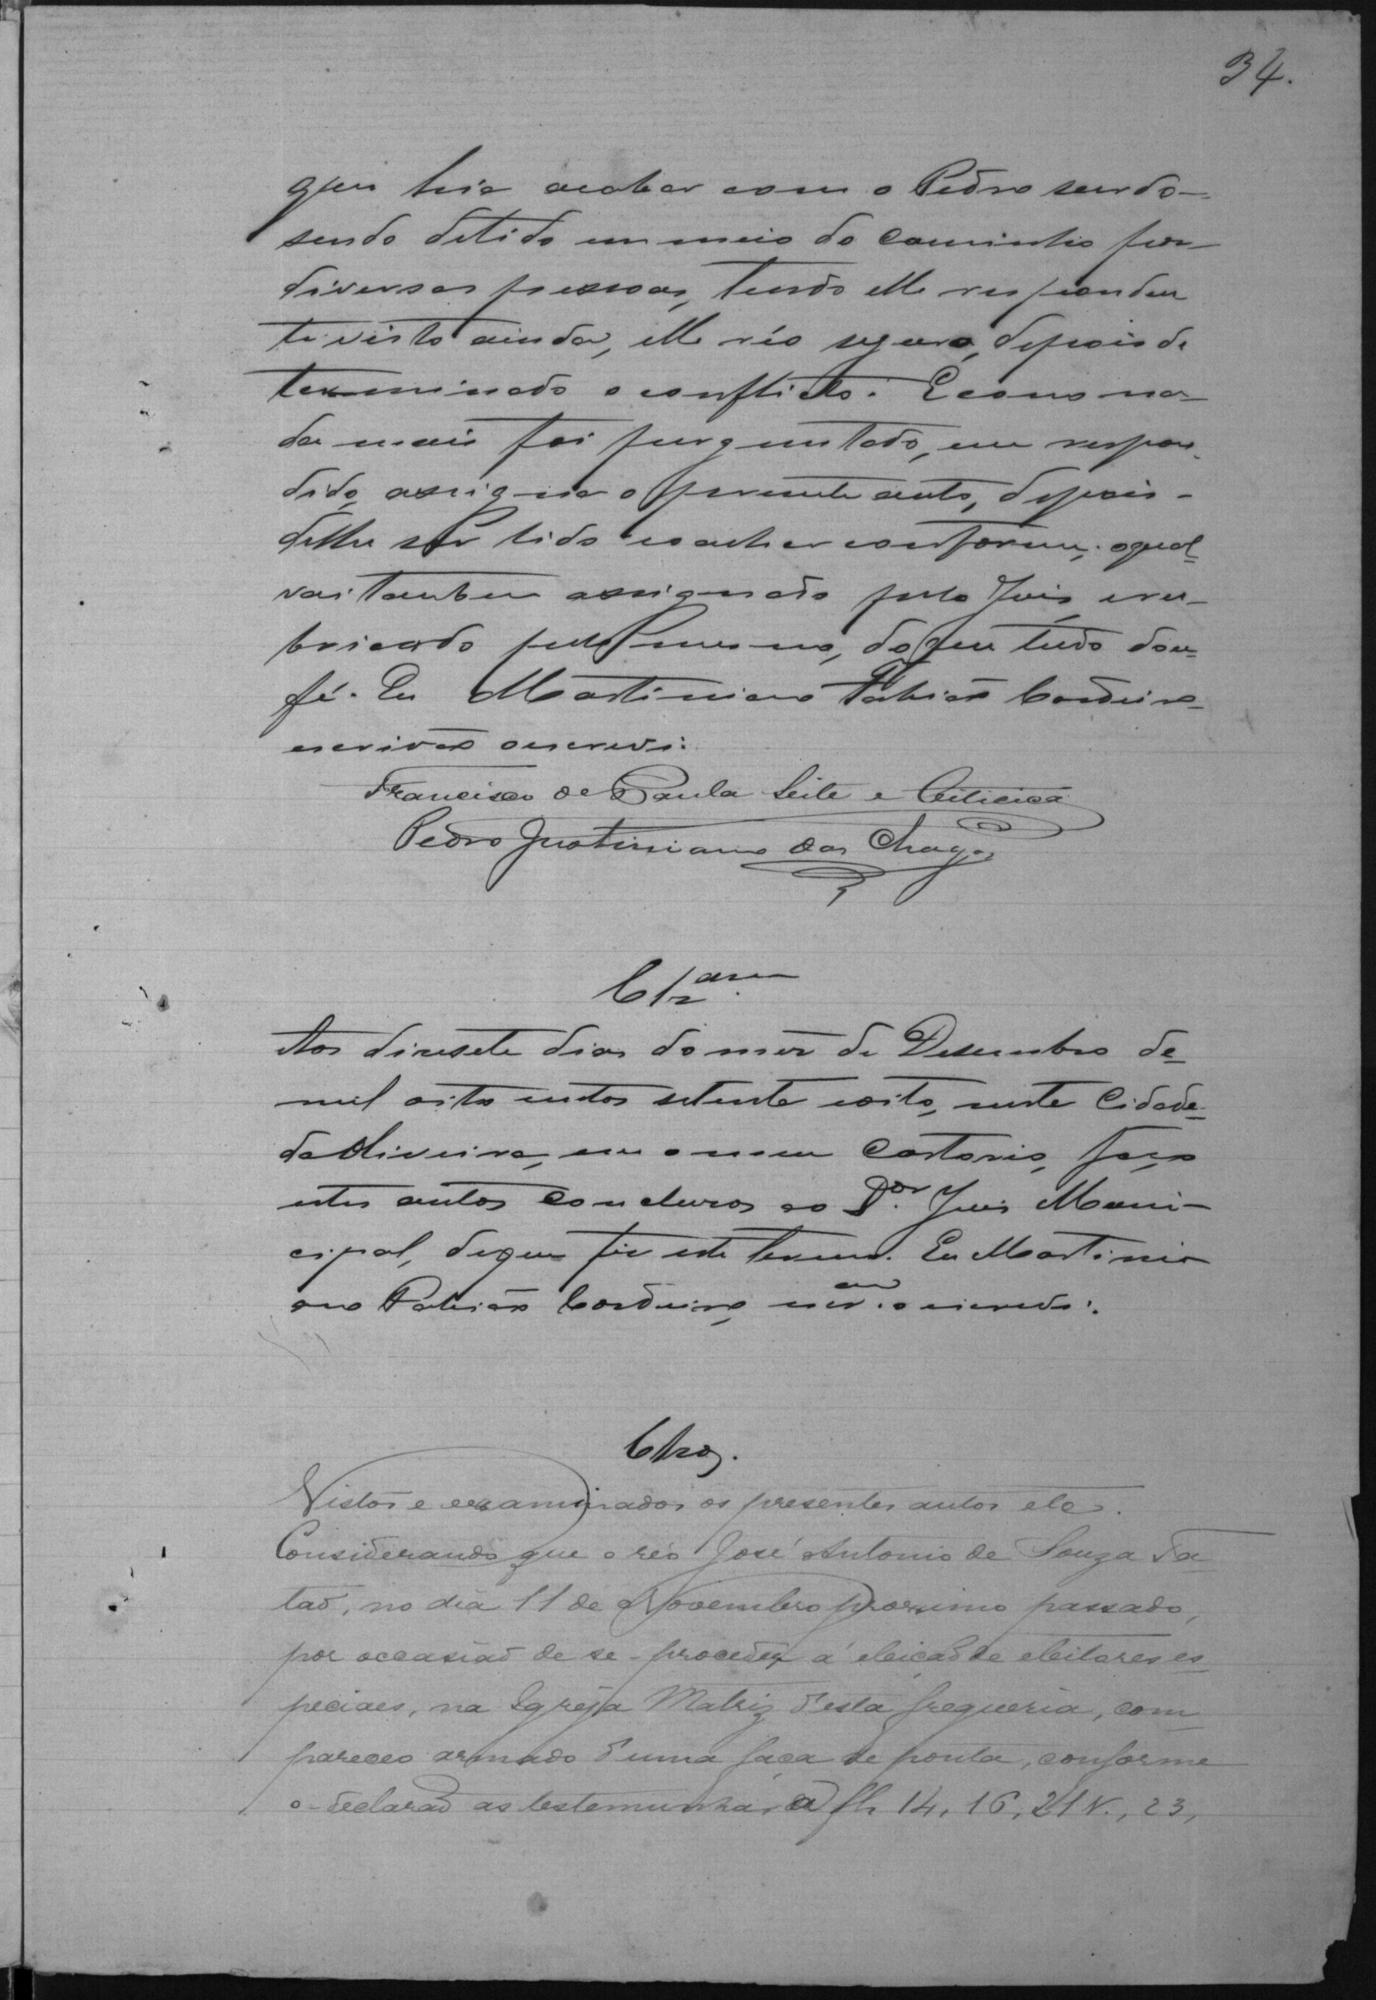 34.
que hia acabar com o Pedro surdo
sendo detido em meio do caminho por
diversas pessoas, tendo elle respondente
te visto ainda, elle réo seguro, depois de
terminado o conflicto. E como na-
da mais foi perguntado, nem respon-
dido, assigna o presente auto, depois
delhe ser lido e o achar conforme, o qual
vai tambem assignado pelo Juis, e ru-
bricado pelo mesmo, do que tudo dou
fé. Eu Martiniano Fabião Cordeiro
escrivão o escrevi.
Francisco de Paula Leite e
Pedro Justiniano das Chagas
Clzam
Aos diesete dias do mês de Desembro de
mil oito centos setente e oito, neste Cidade
da Oliveira, em o meu Cartorio, faço
estes autos conclusos ao Dor. Juis Muni-
cipal, de que fiz este termo. Eu Martini
ano Fabião Cordeiro, escram. o escrevi.
Clzos.
Vistos e examinados os presentes autos etc.
Considerando que o réo José Antonio de Souza Fa-
tao, no dia 11 de Novembro proximo passado,
por occasiaõ de se proceder á eleiçaõ de eleitores es-
peciaes, na Igreja Matriz d'esta freguesia, com-
pareceo armado d'uma faca de ponta, conforme
o declaraõ as testemunhas a fls 14, 16, 21 V., 23,